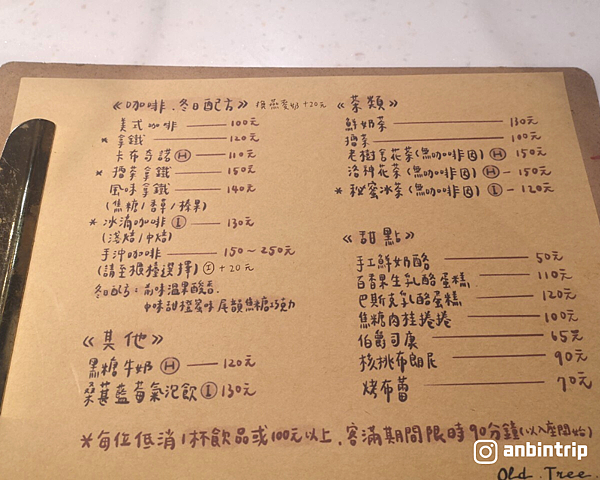 《咖啡.冬日配方》 換燕麥奶+20元
美式咖啡 100元
* 拿鐵 120元
卡布奇諾 H 110元
* 擂茶拿鐵 150元
風味拿鐵 140元
(焦糖/香草/榛果)
* 冰滴咖啡 I 130元
(淺焙/中焙)
手沖咖啡 150~250元
(請至吧檯選擇) I +20元
冬日配方:前味溫果酸香.
中味甜橙蜜味 尾韻焦糖巧克力
《其他》
黑糖牛奶 H 120元
桑葚藍莓氣泡飲 I 130元
《茶類》
鮮奶茶 130元
擂茶 100元
老樹窖花茶(無咖啡因) H 150元
洛神花茶(無咖啡因) H 150元
* 秘蜜冰茶(無咖啡因) I 120元
《甜點》
手工鮮奶酪 50元
百香果生乳酪蛋糕 110元
巴斯克乳酪蛋糕 120元
焦糖肉桂捲捲 100元
伯爵司康 65元
核桃布朗尼 90元
烤布蕾 70元
*每位低消1杯飲品或100元以上.客滿期間限時90分鐘(以入座開始)
anbintrip
Old Tree.